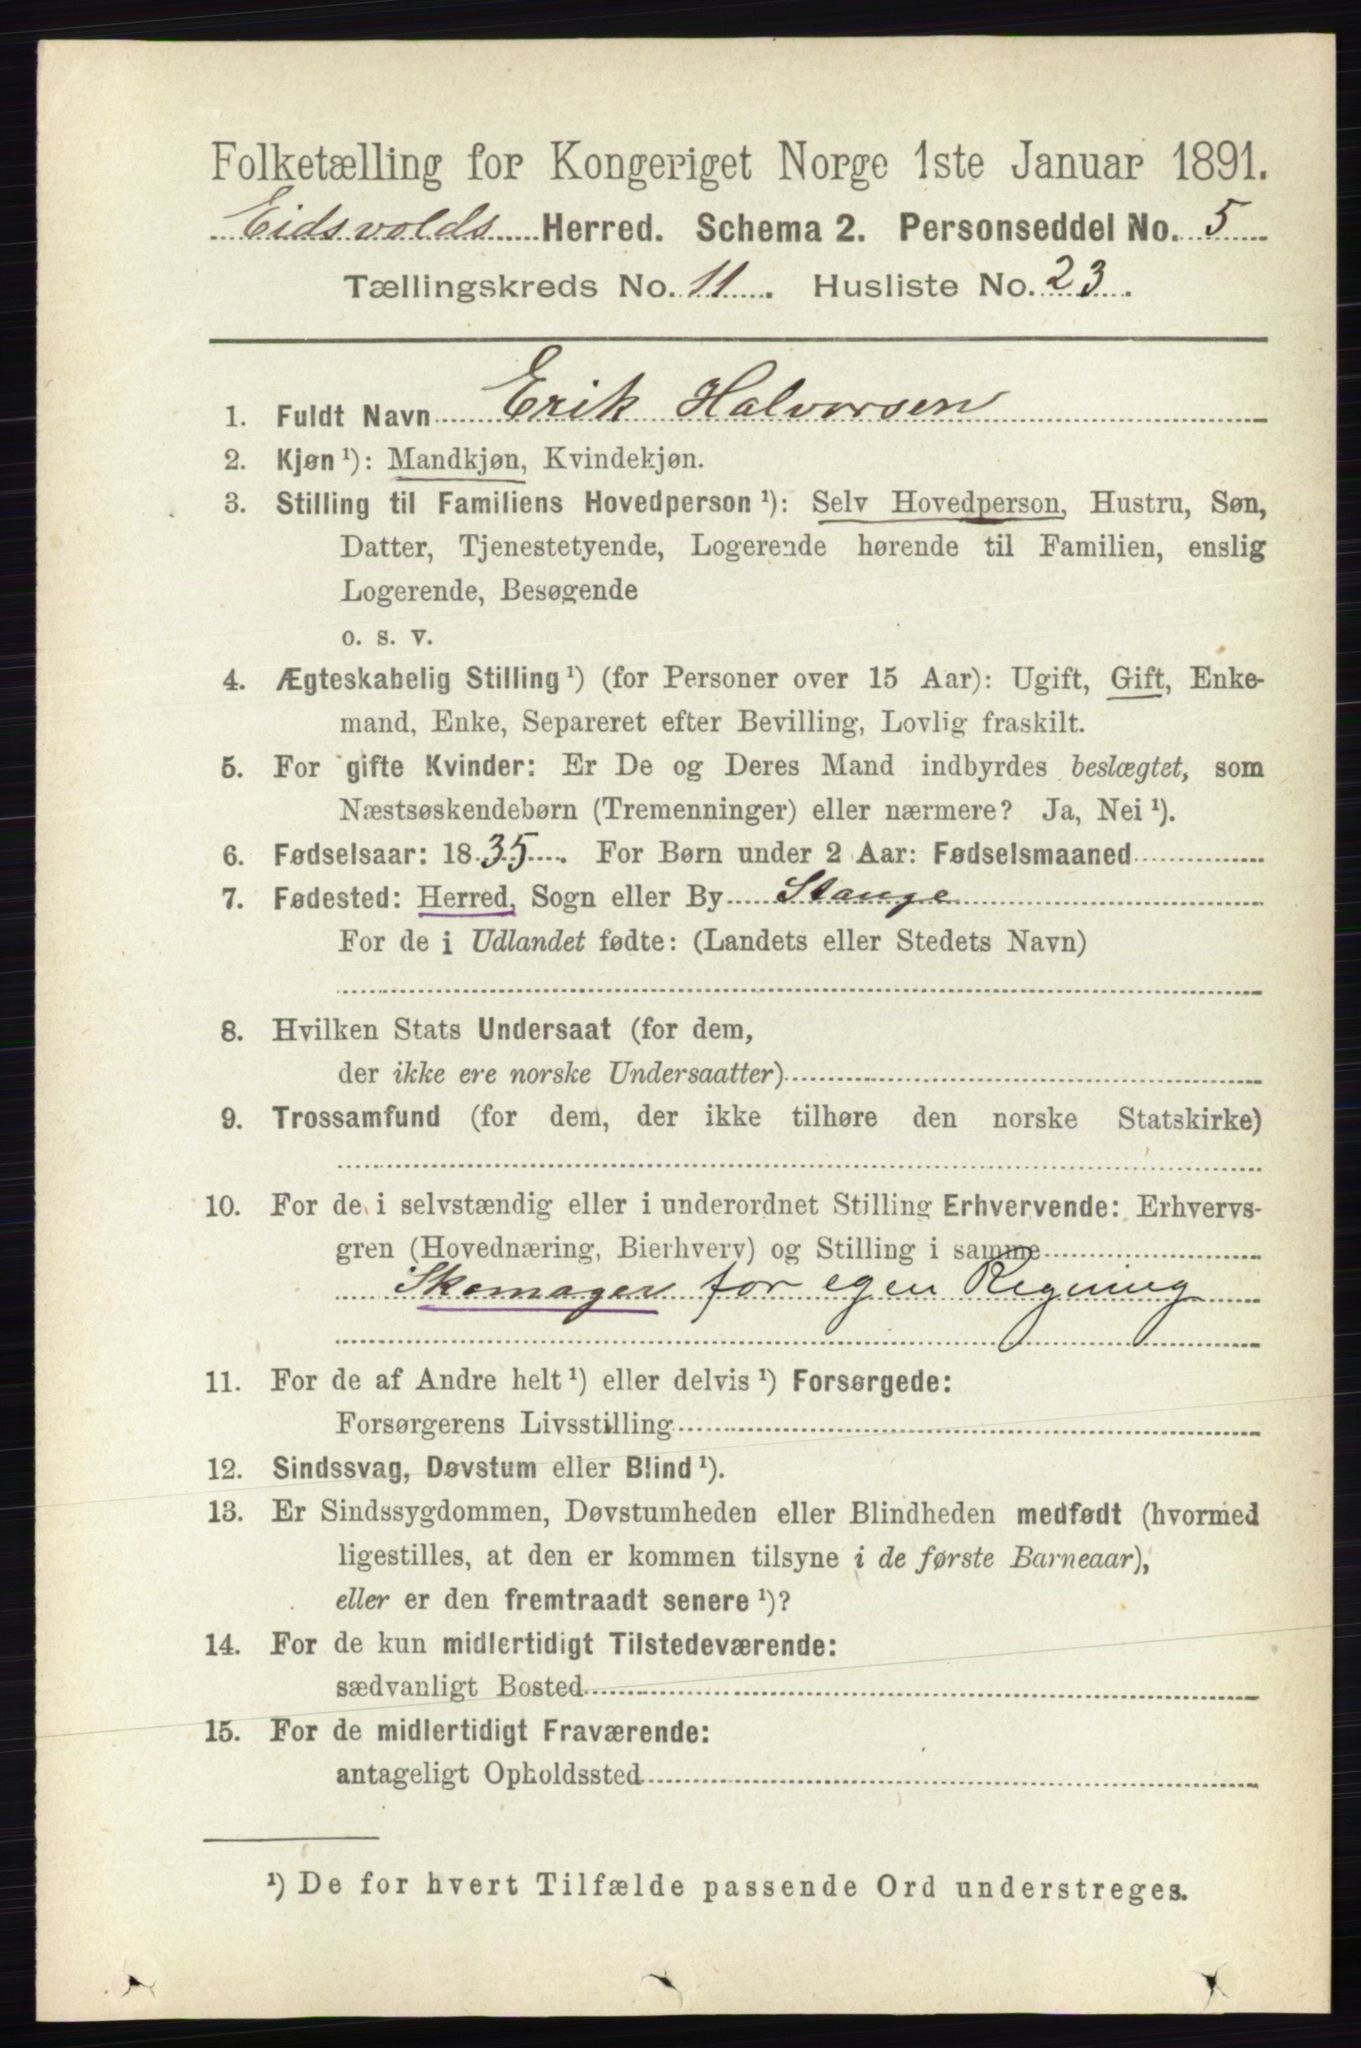 Folketælling for Kongeriget Norge 1ste Januar 1891.
Eidsvolds Herred. Schema 2. Personseddel No. 5
Tællingskreds No. 11. Husliste No. 23.
1. Fuldt Navn Erik Halvorsen
2. Kjøn ¹): Mandkjøn, Kvindekjøn.
3. Stilling til Familiens Hovedperson ¹): Selv Hovedperson, Hustru, Søn,
Datter, Tjenestetyende, Logerende hørende til Familien, enslig
Logerende, Besøgende
o. s. v.
4. Ægteskabelig Stilling ¹) (for Personer over 15 Aar): Ugift, Gift, Enke-
mand, Enke, Separeret efter Bevilling, Lovlig fraskilt.
5. For gifte Kvinder: Er De og Deres Mand indbyrdes beslægtet, som
Næstsøskendebørn (Tremenninger) eller nærmere? Ja, Nei ¹).
6. Fødselsaar: 1835. For Børn under 2 Aar: Fødselsmaaned
7. Fødested: Herred, Sogn eller By Stange
For de i Udlandet fødte: (Landets eller Stedets Navn)
8. Hvilken Stats Undersaat (for dem,
der ikke ere norske Undersaatter)
9. Trossamfund (for dem, der ikke tilhøre den norske Statskirke)
10. For de i selvstændig eller i underordnet Stilling Erhvervende: Erhvervs-
gren (Hovednæring, Bierhverv) og Stilling i samme
Skomager for egen Regning
11. For de af Andre helt ¹) eller delvis ¹) Forsørgede:
Forsørgerens Livsstilling
12. Sindssvag, Døvstum eller Blind ¹).
13. Er Sindssygdommen, Døvstumheden eller Blindheden medfødt (hvormed
ligestilles, at den er kommen tilsyne i de første Barneaar),
eller er den fremtraadt senere ¹)?
14. For de kun midlertidigt Tilstedeværende:
sædvanligt Bosted
15. For de midlertidigt Fraværende:
antageligt Opholdssted
¹) De for hvert Tilfælde passende Ord understreges.